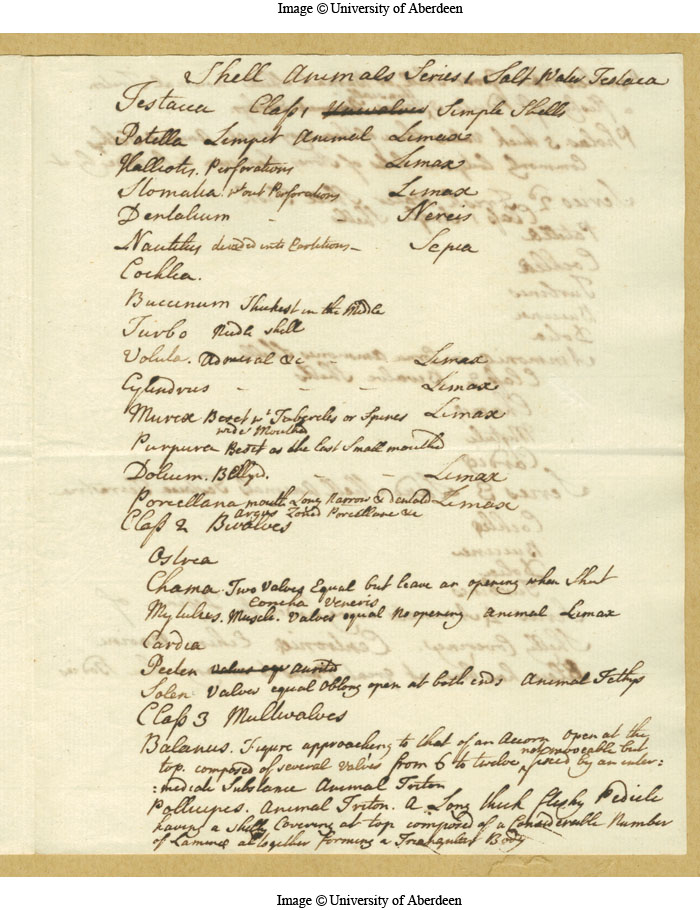 Image © University of Aberdeen
Shell Animals Series 1 Salt Water Testacea
Testacea Class 1 Univalves Simple Shells
Patella Limpet Animal Limax
Halliotis. Perforations Limax
Stomatia. wtout Perforations Limax
Dentalium - - Nereis
Nautilus divided into Partitions - Sepia
Cochlea.
Buccinum Thickest in the Middle
Turbo Nidle shell
Voluta. Admiral &c - - Limax
Cylindrus - - - Limax
Murex Beset wt Tubercles or Spines Limax
wide Mouthed
Purpura Beset as the last Small mouthed
Dolium. Bellyd. - - Limax
Porcellana mouth Long Narrow & dentated Limax
Argus Zoned Porcellane &c
Class 2 Bivalves
Ostrea
Chama. Two Valves Equal but leave an opening when Shut
Concha Veneris
Mytulus. Muscle. Valves equal No opening Animal Limax
Cardia
Pecten Valves eqr Aurited
Solen Valves equal Oblong open at both ends Animal Tethys
Class 3 Multivalves
Balanus. Figure approaching to that of an Acorn Open at the
top. composed of several valves from 6 to twelve, not moveable but fixed by an inter:
:mediate Substance Animal Triton
Pollicipes. Animal Triton. A Long thick fleshy Pedicle
having a Shelly Covering at top composed of a Considerable Number
of Laminæ altogether forming a Triangular Body
Image © University of Aberdeen